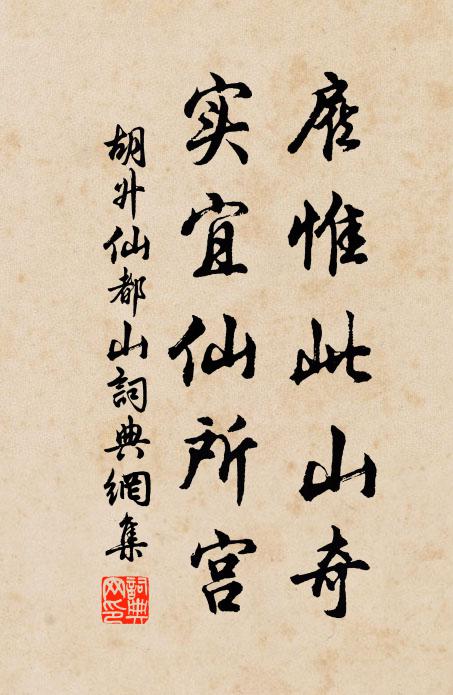 惟此山奇
实宜仙所宫
胡升仙都山詞典網集
詞典网印